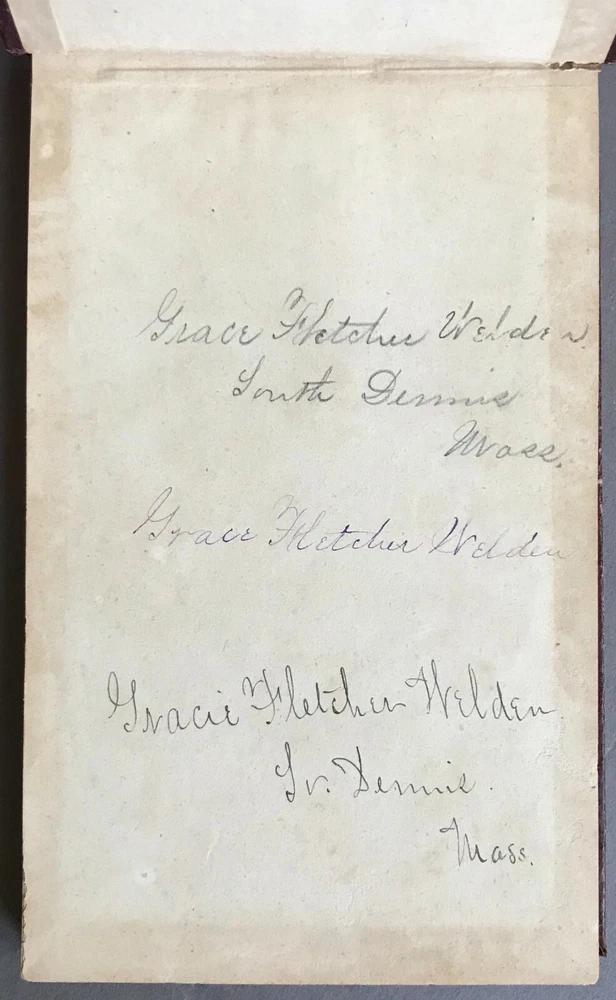 Grace Fletcher Welden.
South Dennis
Mass.
Grace Fletcher Welden
Gracie Fletcher Welden
So. Dennis.
Mass.